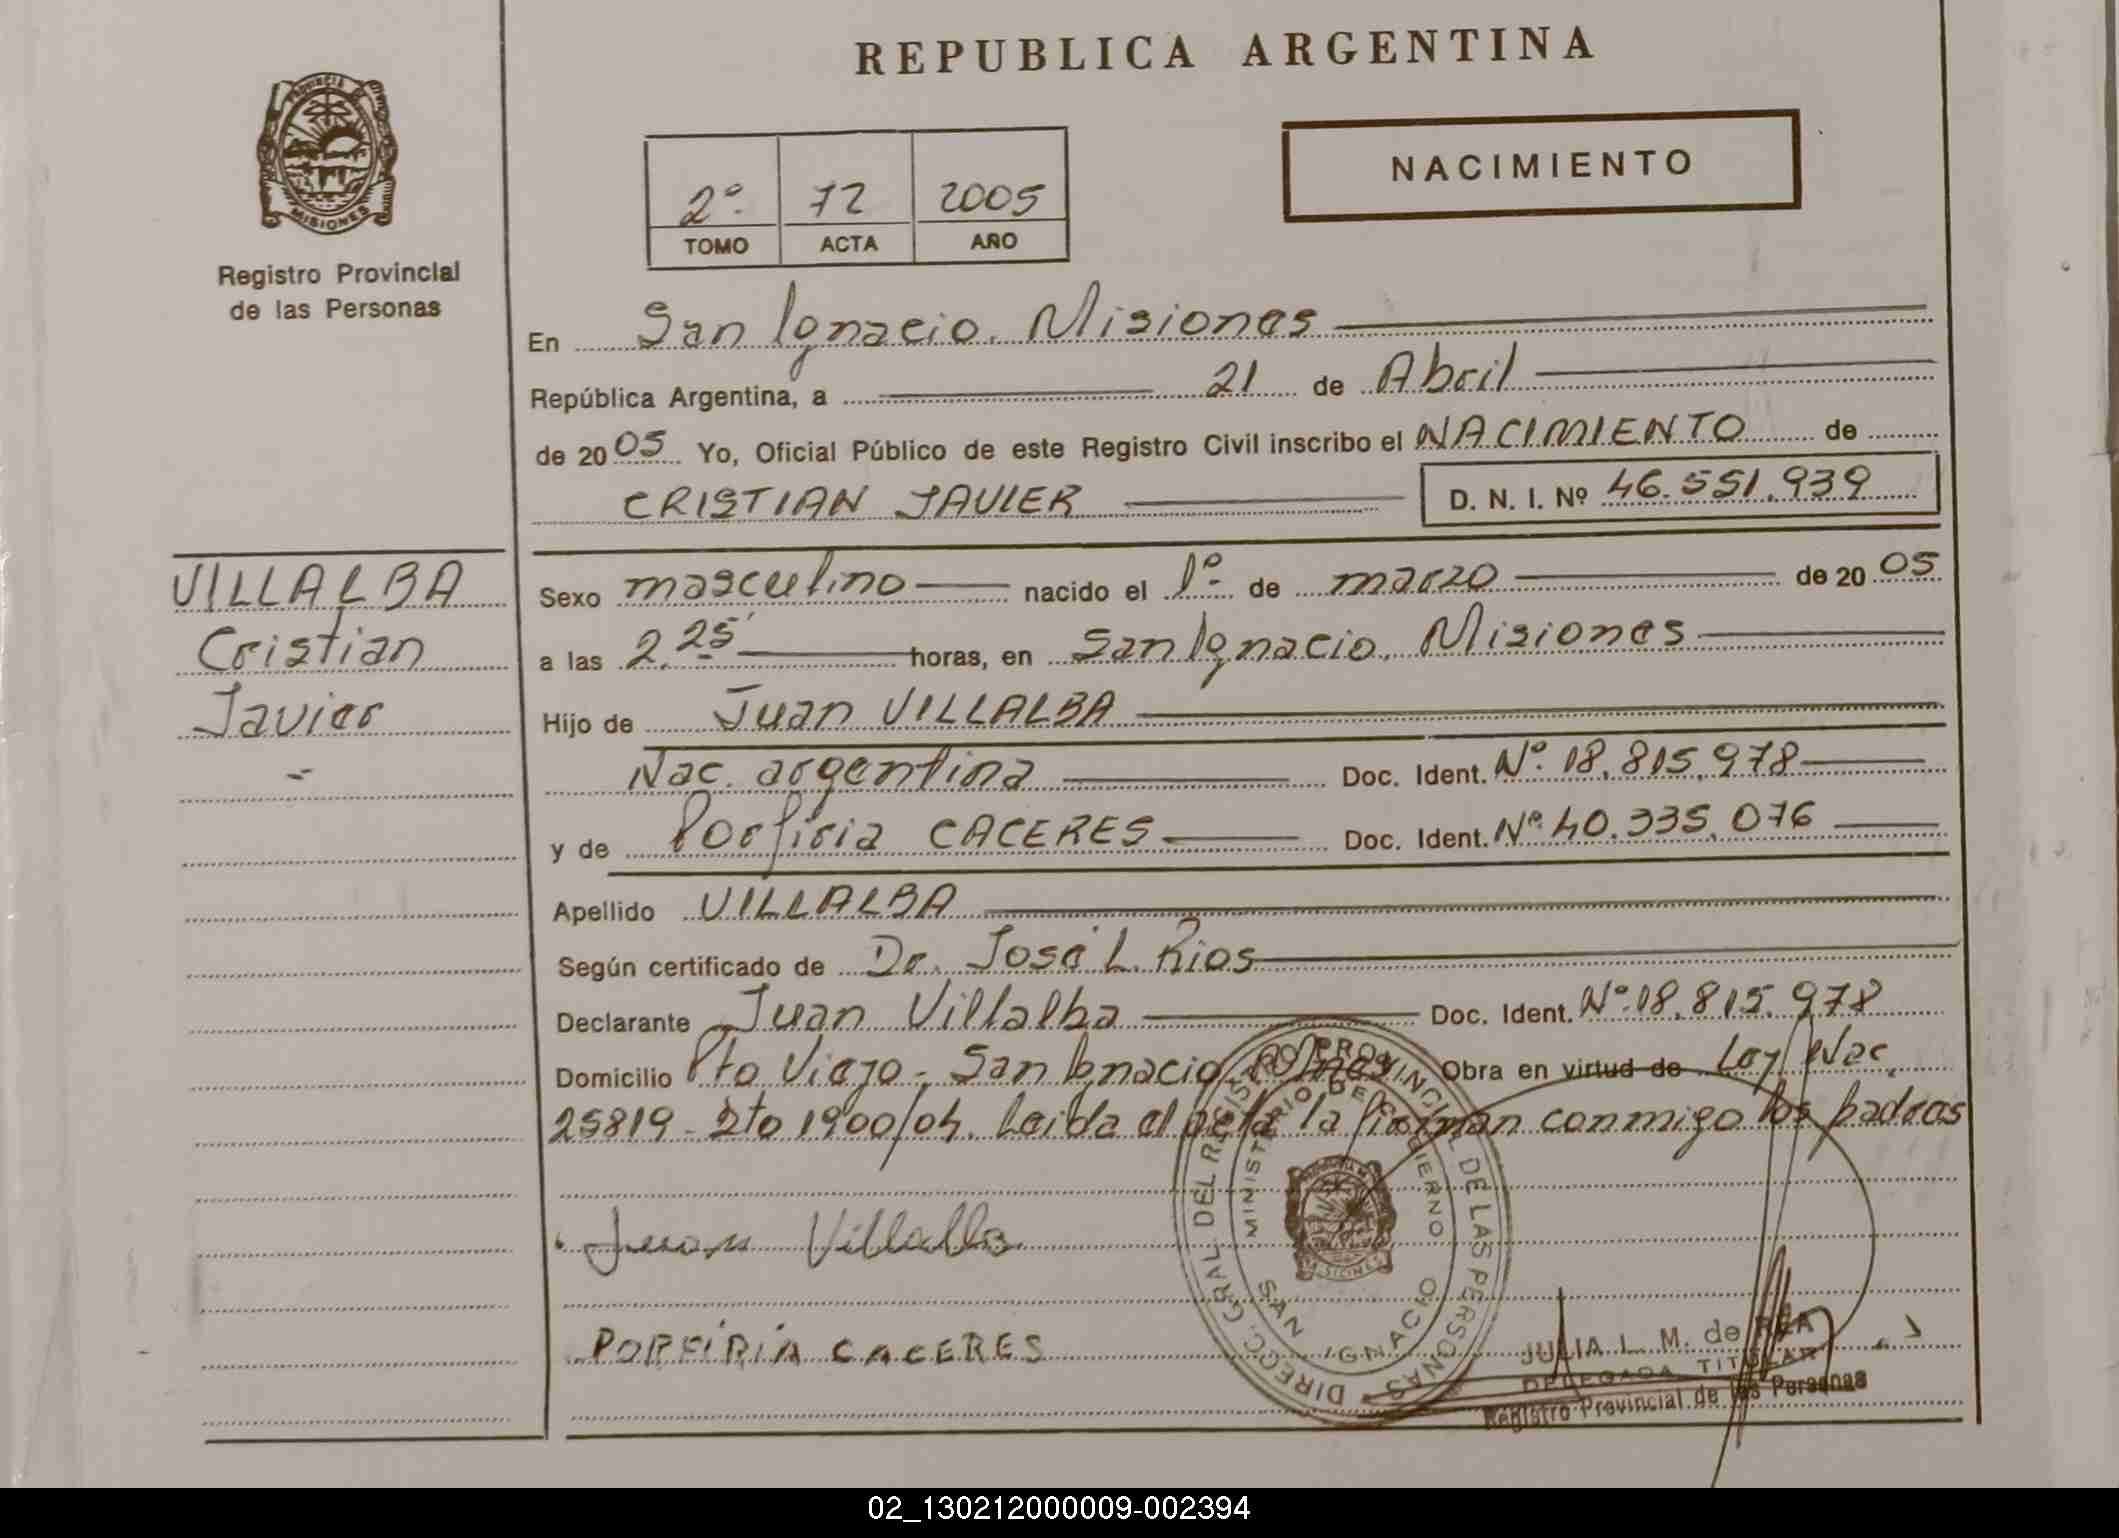 REPUBLICA ARGENTINA
PROVINCIA DE
MISIONES
Registro Provincial
de las Personas
2º 72 2005
TOMO ACTA AÑO
NACIMIENTO
En San Ignacio. Misiones
República Argentina, a 21 de Abril
de 2005 Yo, Oficial Público de este Registro Civil inscribo el NACIMIENTO de
CRISTIAN JAVIER D. N. I. Nº 46.551.939
VILLALBA
Cristian
Javier
Sexo masculino nacido el 1º de marzo de 2005
a las 2.25' horas, en San Ignacio. Misiones
Hijo de Juan VILLALBA
Nac. argentina Doc. Ident. Nº 18.815.978
y de Porfiria CACERES Doc. Ident. Nº 40.335.076
Apellido VILLALBA
Según certificado de Dr. José L. Rios
Declarante Juan Villalba Doc. Ident. Nº 18.815.978
Domicilio Pto Viejo - San Ignacio Obra en virtud de Ley Nac.
25819 - Dto 1900/04. Leida el acta la firman conmigo los padres
Juan Villalba
PORFIRIA CACERES
DIRECC. GRAL. DEL REGISTRO PROVINCIAL DE LAS PERSONAS
MINISTERIO DE GOBIERNO
SAN IGNACIO
JULIA L. M. de REA
DELEGADA TITULAR
Registro Provincial de las Personas
02_130212000009-002394